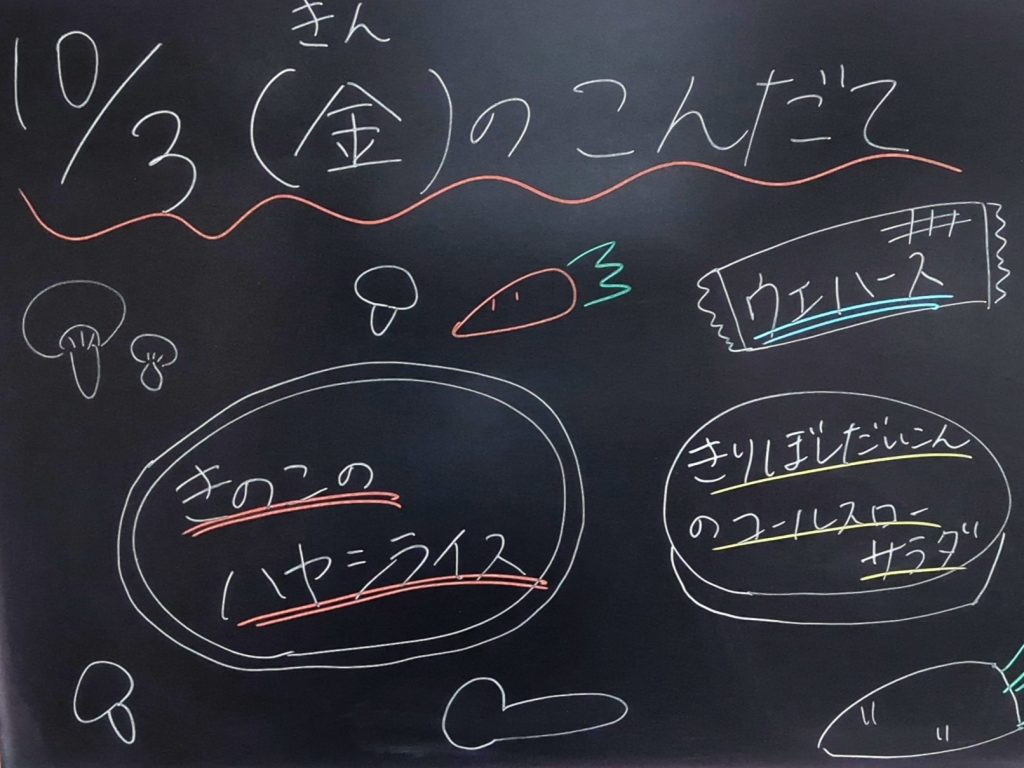 きん
10/3(金)のこんだて
ウェハース
きのこの
ハヤシライス
きりぼしだいこん
のコールスロー
サラダ